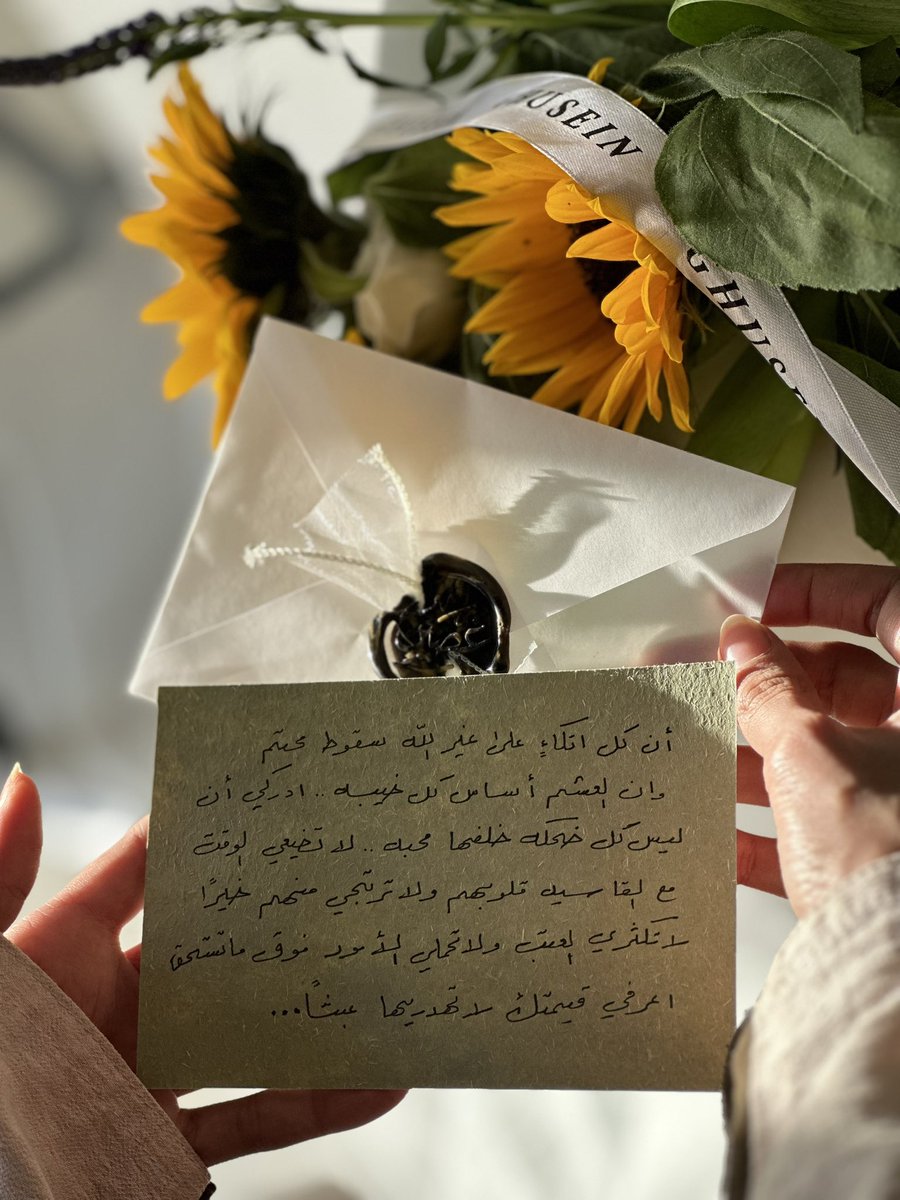 USEIN
GHUSE
أن كل اتكاءٍ على غير الله سقوط محتم
وان العشم أساس كل خيبه .. ادركي أن
ليس كل ضحكه خلفها محبه .. لا تضيعي الوقت
مع القاسيه قلوبهم ولا ترتجي منهم خيرًا
لا تكثري العتب ولا تحملي الأمور فوق ماتستحق
اعرفي قيمتك لا تهدريها عبثًا...